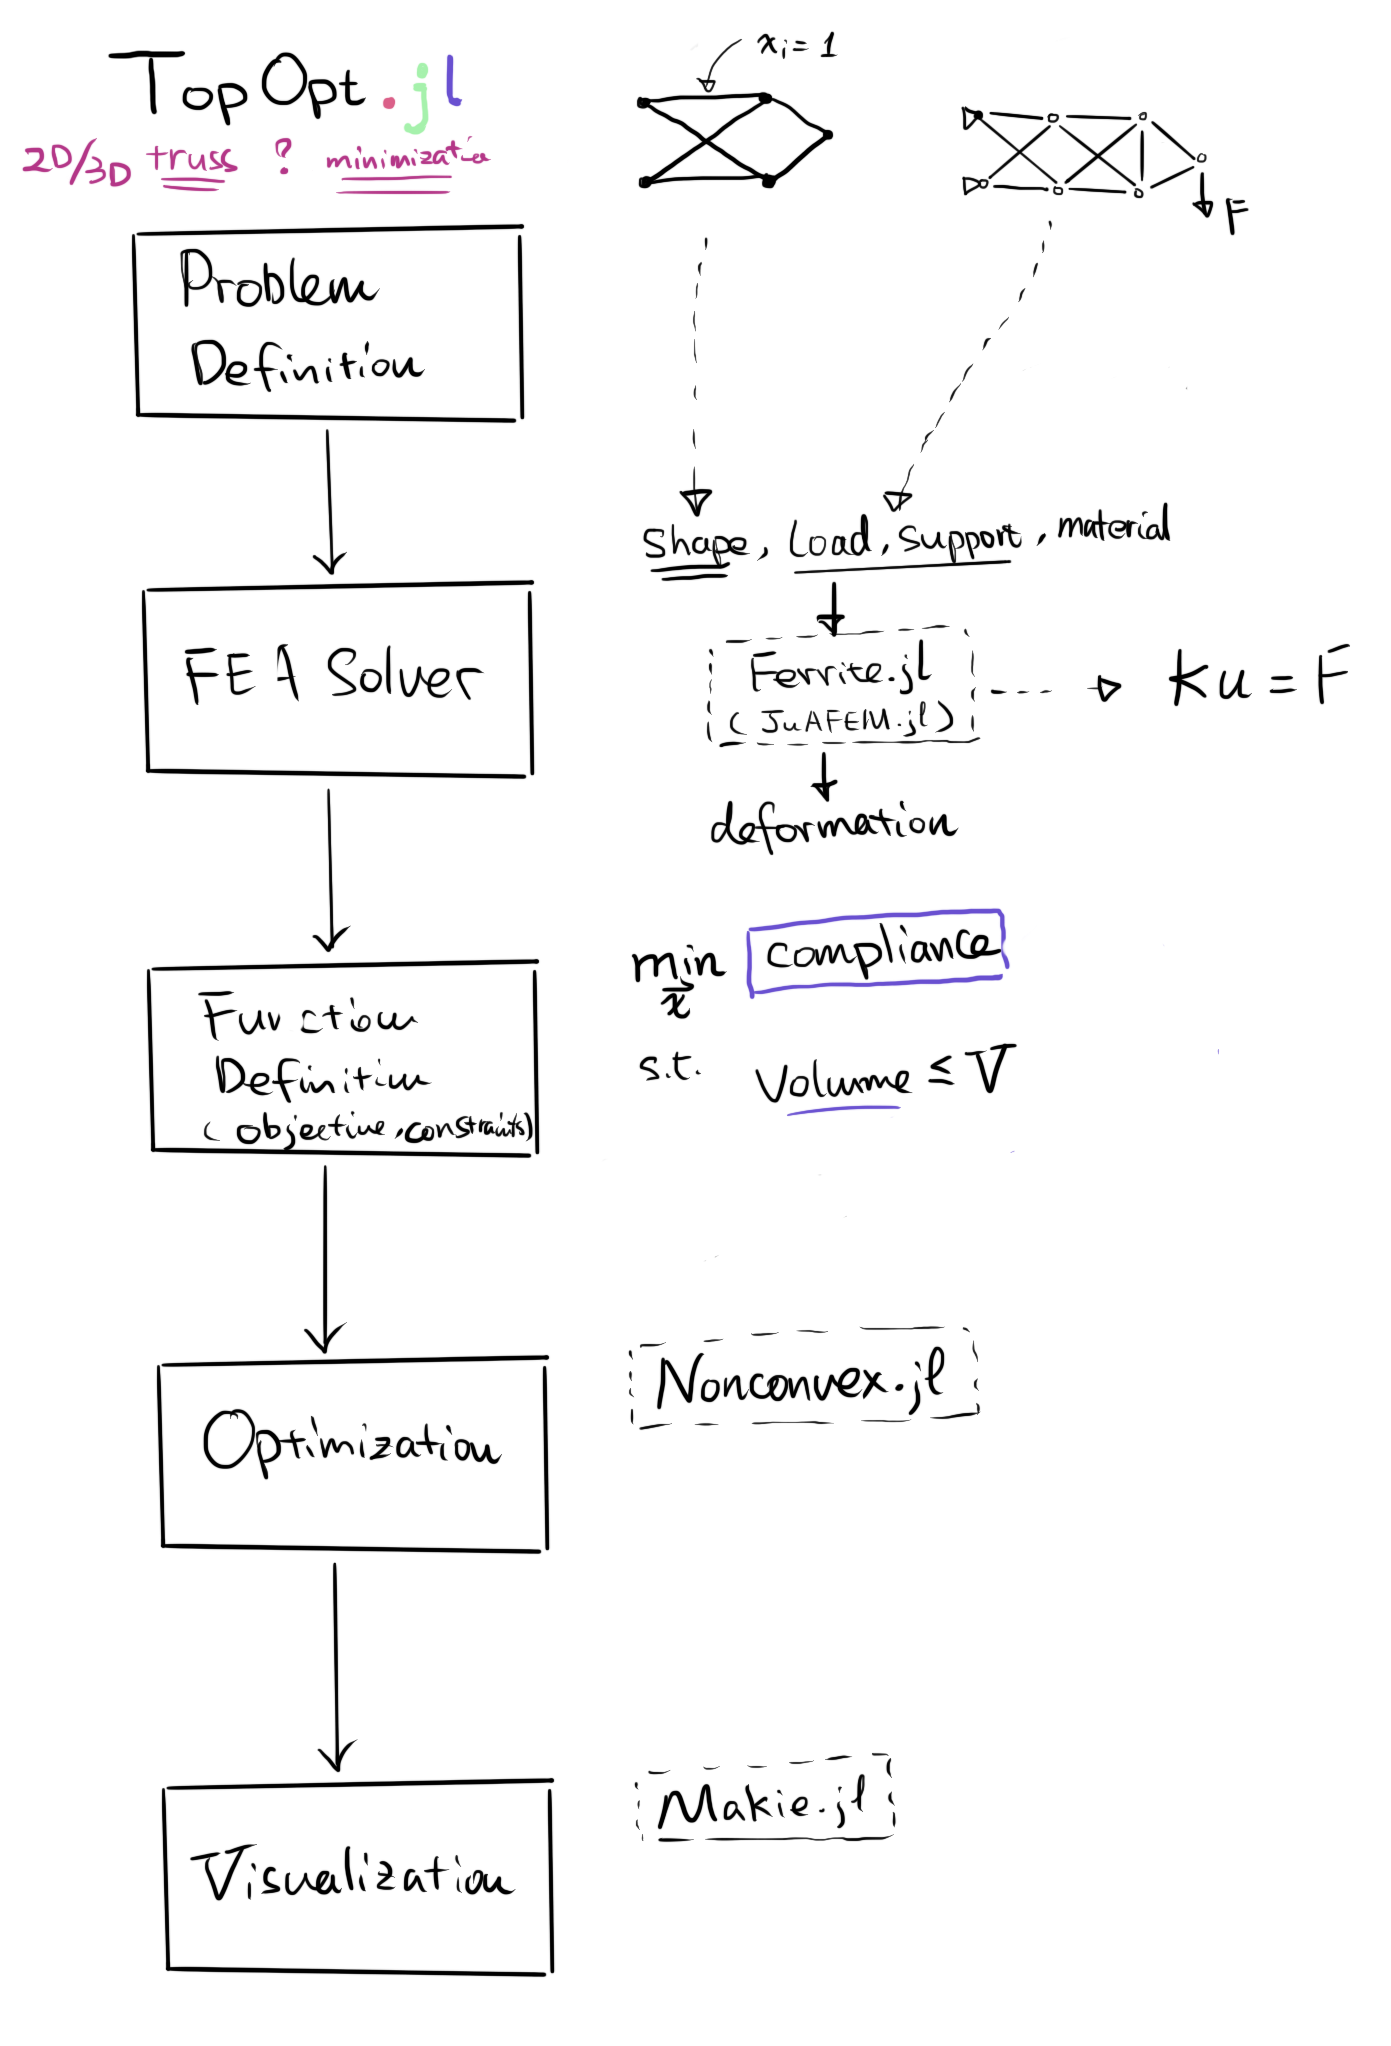 TopOpt.jl
2D/3D truss ? minimization
xᵢ = 1
F
Problem
Definition
shape, Load, support, material
FEA Solver
Ferrite.jl
(JuAFEM.jl)
Ku = F
deformation
Function
Definition
(objective, constraints)
min compliance
x
s.t. Volume ≤ V
Optimization
Nonconvex.jl
Visualization
Makie.jl